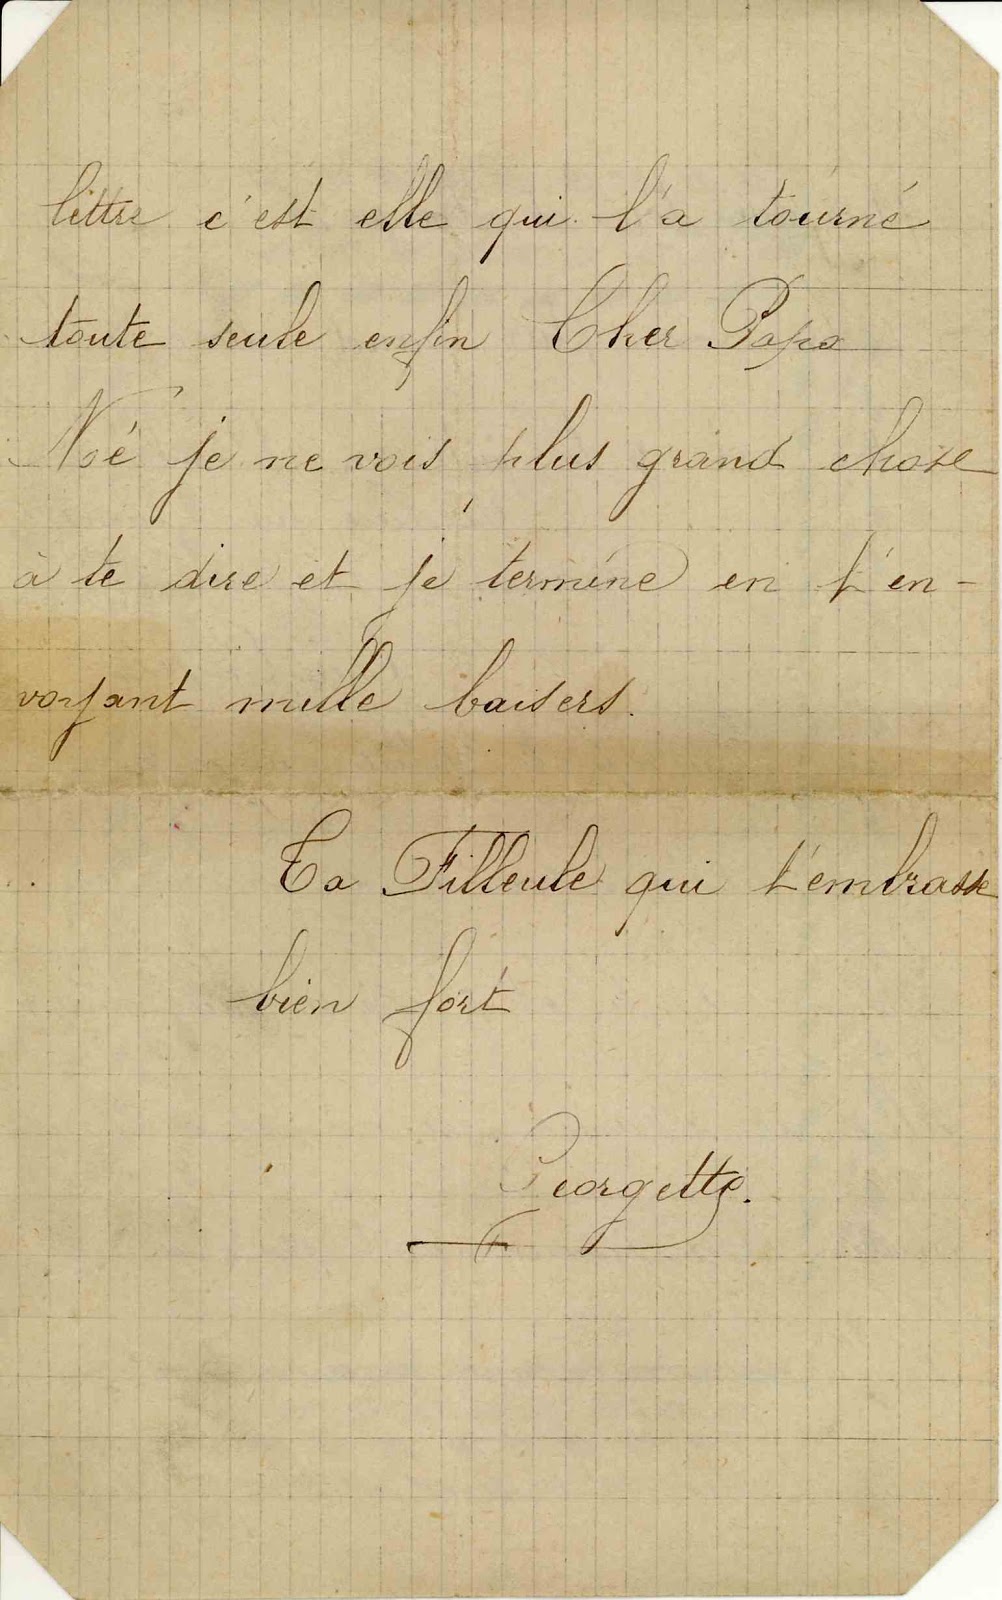 lettre c'est elle qui l'a tourné
toute seule enfin Cher Papa
Noé je ne vois plus grand chose
à te dire et je termine en t'en-
voyant mille baisers.
Ta Filleule qui t'embrasse
bien fort
Georgette.